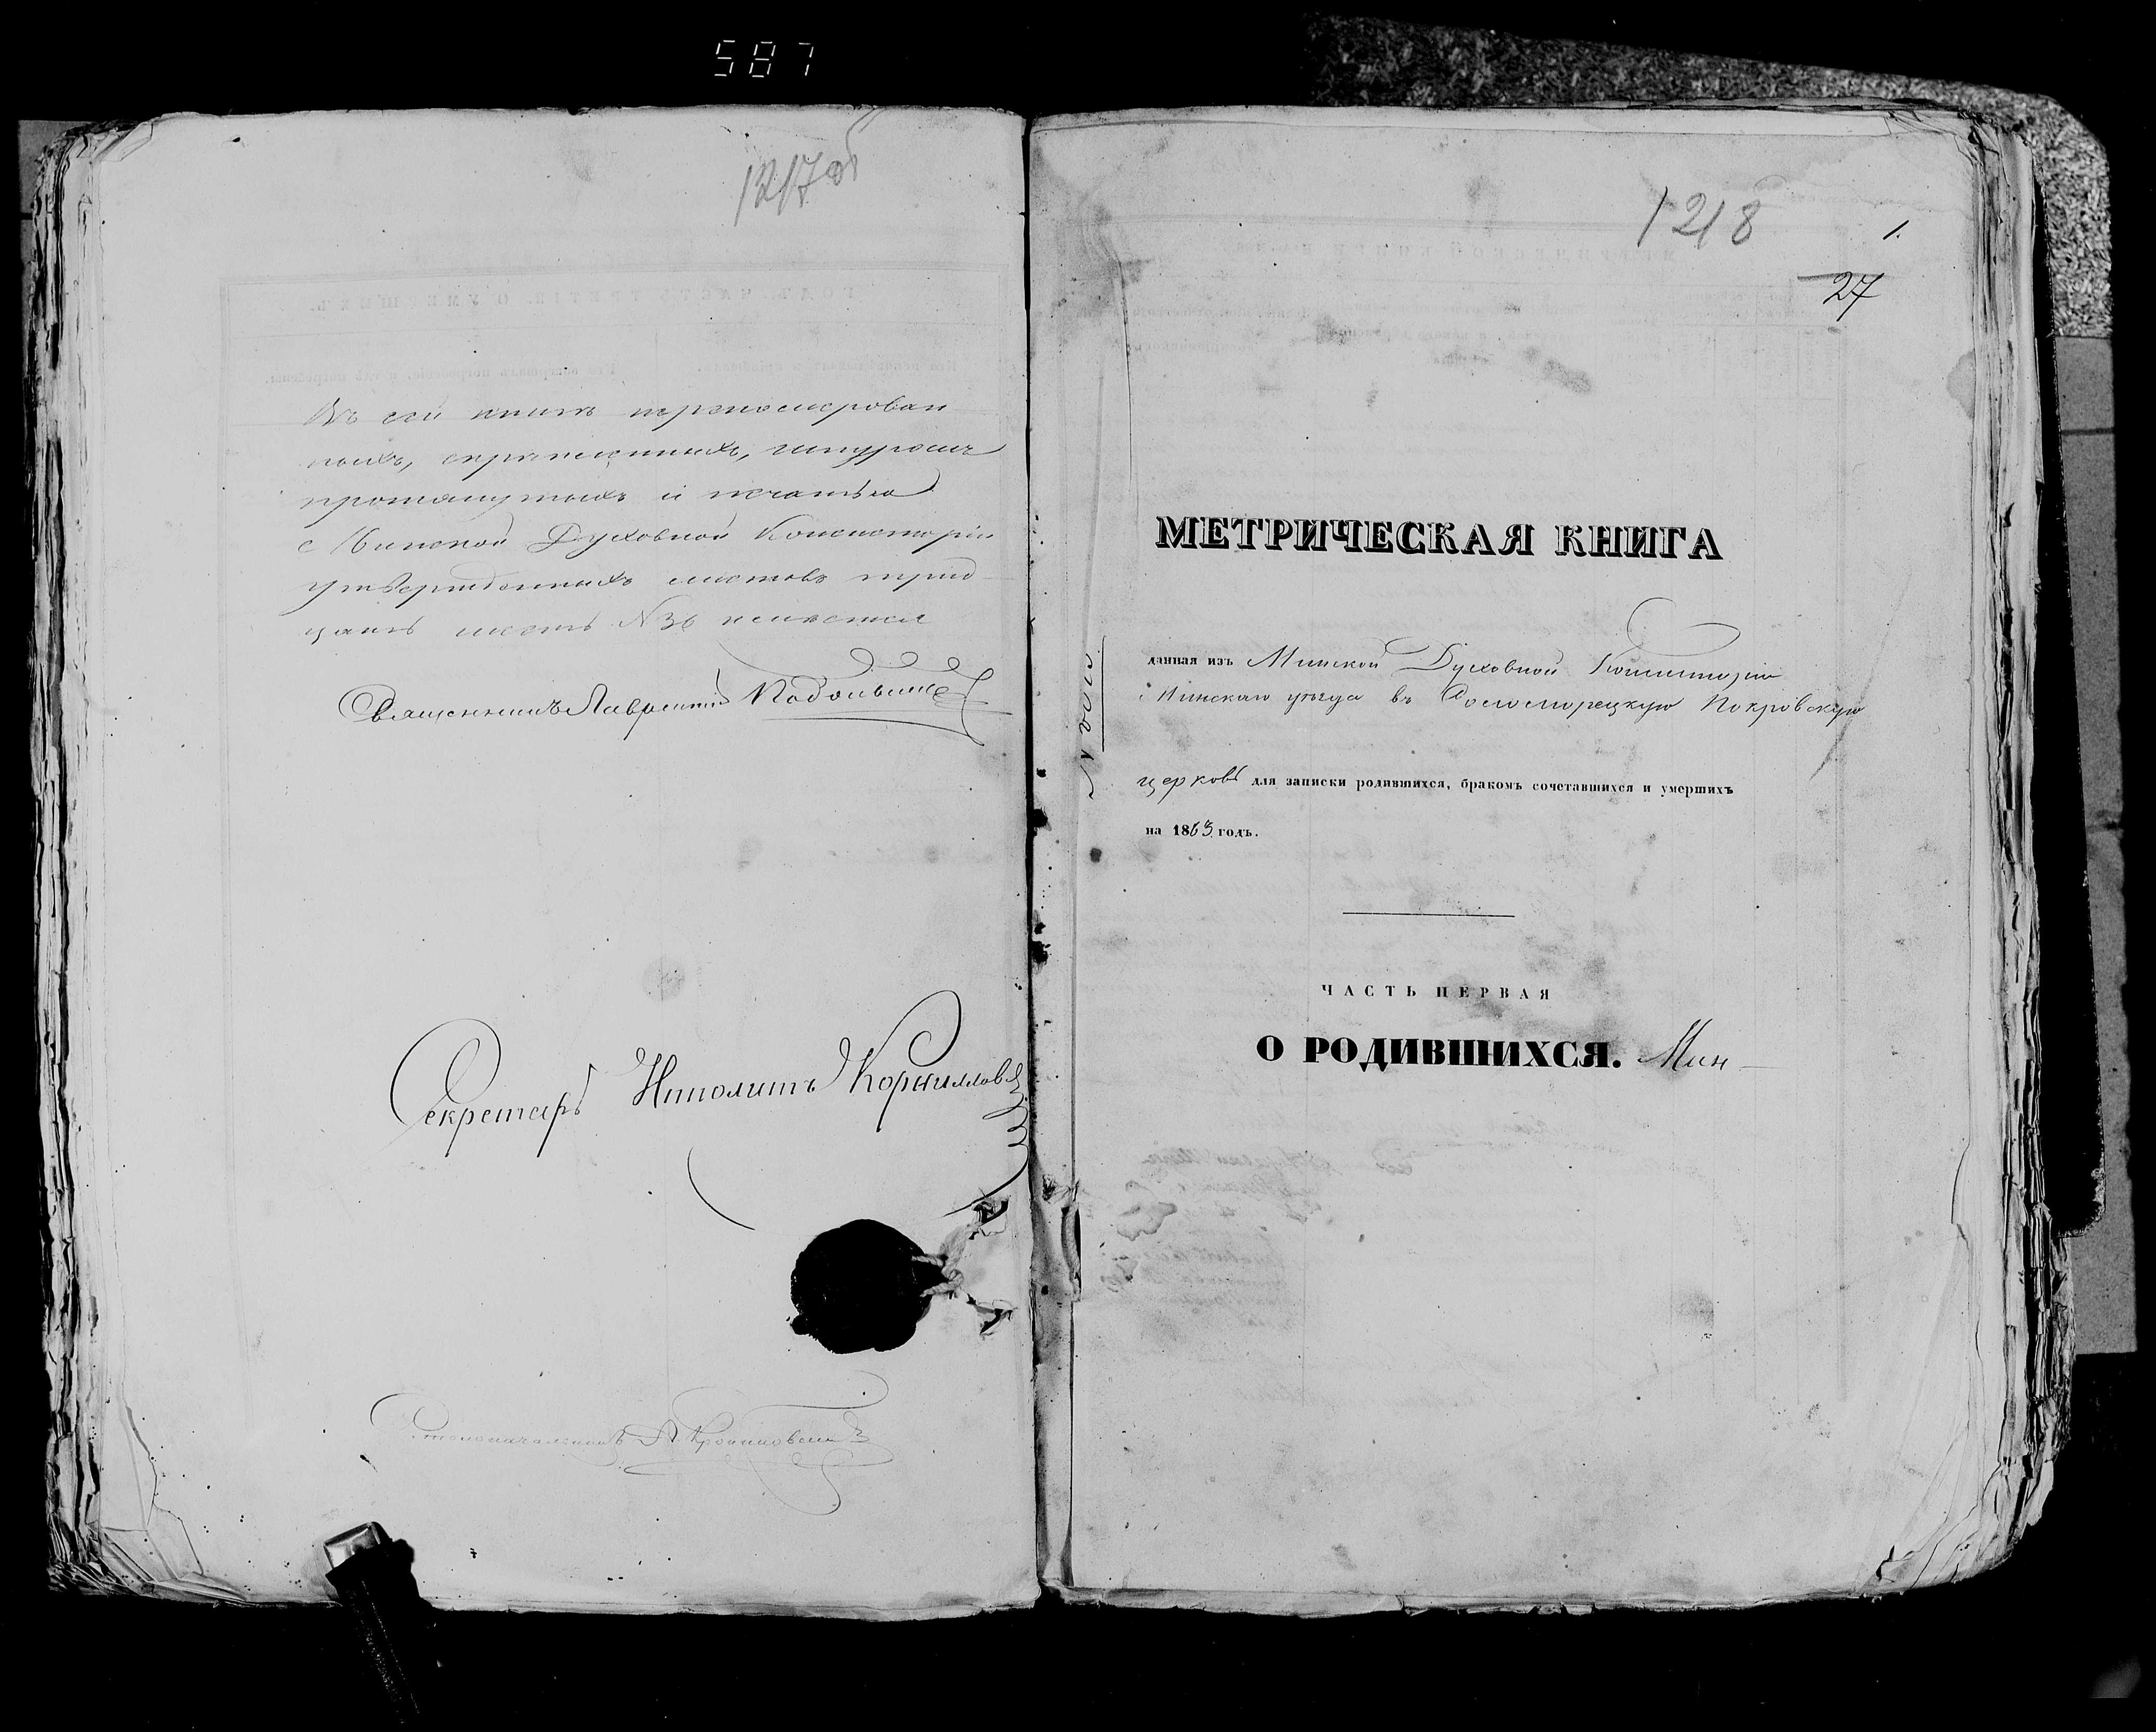 587
1217об
Въ сей книгѣ перенумерован
ныхъ, скрѣпленныхъ, шнуромъ
протянутыхъ и печатью
Минской Духовной Консисторіи
утвержденныхъ листовъ трид
цать шесть №36 имѣется
Священникъ Лаврентій
Секретарь Иполитъ Корниловъ
Столоначальникъ
1218
1.
27
МЕТРИЧЕСКАЯ КНИГА
данная изъ Минской Духовной Консисторіи
Минскаго уѣзда въ Покровскую
церковь для записки родившихся, бракомъ сочетавшихся и умершихъ
на 1863 годъ.
ЧАСТЬ ПЕРВАЯ
О РОДИВШИХСЯ. Мин